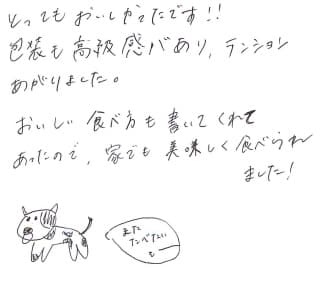 とってもおいしかったです!!
包装も高級感があり、テンション
あがりました。
おいしい食べ方も書いてくれて
あったので、家でも美味しく食べられ
ました!
また
たべたい
も〜